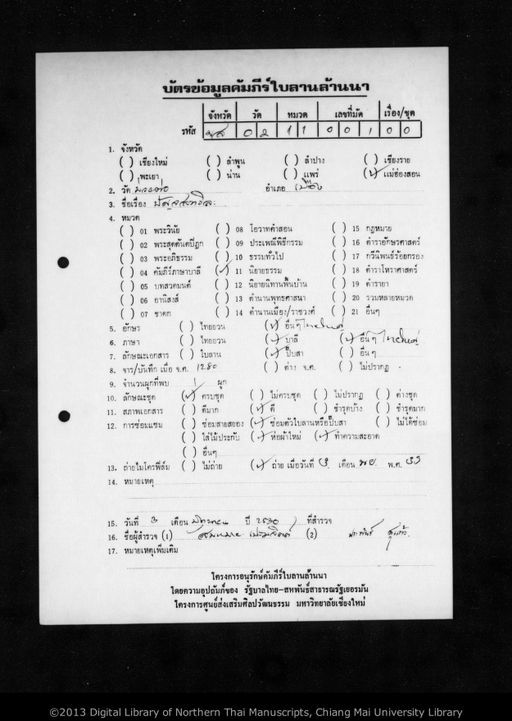 บัตรข้อมูลคัมภีร์ใบลานล้านนา
จังหวัด วัด หมวด เลขที่มัด เรื่อง/ชุด
รหัส มส 0 2 1 1 0 0 1 0 0
1. จังหวัด
( ) เชียงใหม่ ( ) ลำพูน ( ) ลำปาง ( ) เชียงราย
( ) พะเยา ( ) น่าน ( ) แพร่ (✓) แม่ฮ่องสอน
2. วัด ม่วยต่อ อำเภอ เมือง
3. ชื่อเรื่อง
4. หมวด
( ) 01 พระวินัย ( ) 08 โอวาทคำสอน ( ) 15 กฎหมาย
( ) 02 พระสุตตันตปิฎก ( ) 09 ประเพณีพิธีกรรม ( ) 16 ตำราอักษรศาสตร์
( ) 03 พระอภิธรรม ( ) 10 ธรรมทั่วไป ( ) 17 กวีนิพนธ์ร้อยกรอง
( ) 04 คัมภีร์ภาษาบาลี (✓) 11 นิยายธรรม ( ) 18 ตำราโหราศาสตร์
( ) 05 บทสวดมนต์ ( ) 12 นิยายนิทานพื้นบ้าน ( ) 19 ตำรายา
( ) 06 อานิสงส์ ( ) 13 ตำนานพุทธศาสนา ( ) 20 รวมหลายหมวด
( ) 07 ชาดก ( ) 14 ตำนานเมือง/ราชวงศ์ ( ) 21 อื่นๆ
5. อักษา ( ) ไทยยวน (✓) อื่นๆ ไทใหญ่
6. ภาษา ( ) ไทยยวน (✓) บาลี (✓) อื่นๆ ไทใหญ่
7. ลักษณะเอกสาร ( ) ใบลาน (✓) ปั๊บสา ( ) อื่นๆ
8. จาร/บันทึก เมื่อ จ.ศ. 1280 ( ) ต่าง จ.ศ. ( ) ไม่ปรากฏ
9. จำนวนผูกที่พบ 1 ผูก
10. ลักษณะชุด (✓) ครบชุด ( ) ไม่ครบชุด ( ) ไม่ปรากฏ ( ) ต่างชุด
11. สภาพเอกสาร ( ) ดีมาก (✓) ดี ( ) ชำรุดบ้าง ( ) ชำรุดมาก
12. การซ่อมแซม ( ) ซ่อมสายสยอง (✓) ซ่อมตัวใบลานหรือปั๊บสา ( ) ไม่ได้ซ่อม
( ) ใส่ไม้ประกับ (✓) ห่อผ้าใหม่ (✓) ทำความสะอาด
( ) อื่นๆ
13. ถ่ายไมโครฟิล์ม ( ) ไม่ถ่าย (✓) ถ่าย เมื่อวันที่ 3 เดือน พย. พ.ศ. 33
14. หมายเหตุ
15. วันที่ 3 เดือน มิถุนายน ปี 2530 ที่สำรวจ
16. ชื่อผู้สำรวจ (1) (2)
17. หมายเหตุเพิ่มเติม
โครงการอนุรักษ์คัมภีร์ใบลานล้านนา
โดยความอุปถัมภ์ของ รัฐบาลไทย-สหพันธ์สาธารณรัฐเยอรมัน
โครงการศูนย์ส่งเสริมศิลปวัฒนธรรม มหาวิทยาลัยเชียงใหม่
©2013 Digital Library of Northern Thai Manuscripts, Chiang Mai University Library